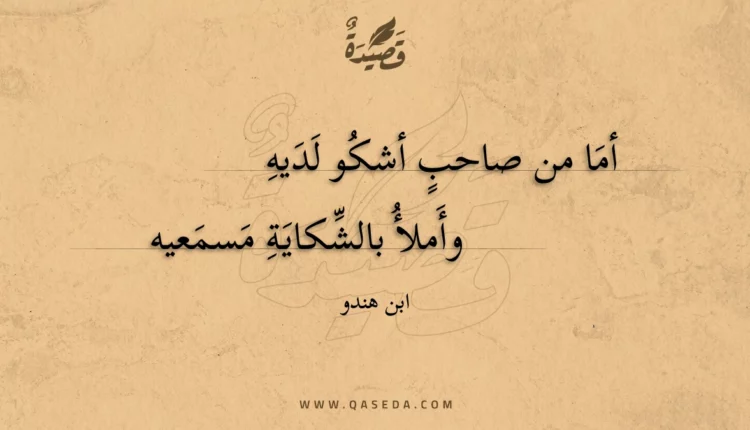 قَصِيْدَةٌ
أمَا من صاحبٍ أشكُو لَدَيهِ
وأَملأُ بالشِّكايَةِ مَسمَعيه
ابن هندو
WWW.QASEDA.COM